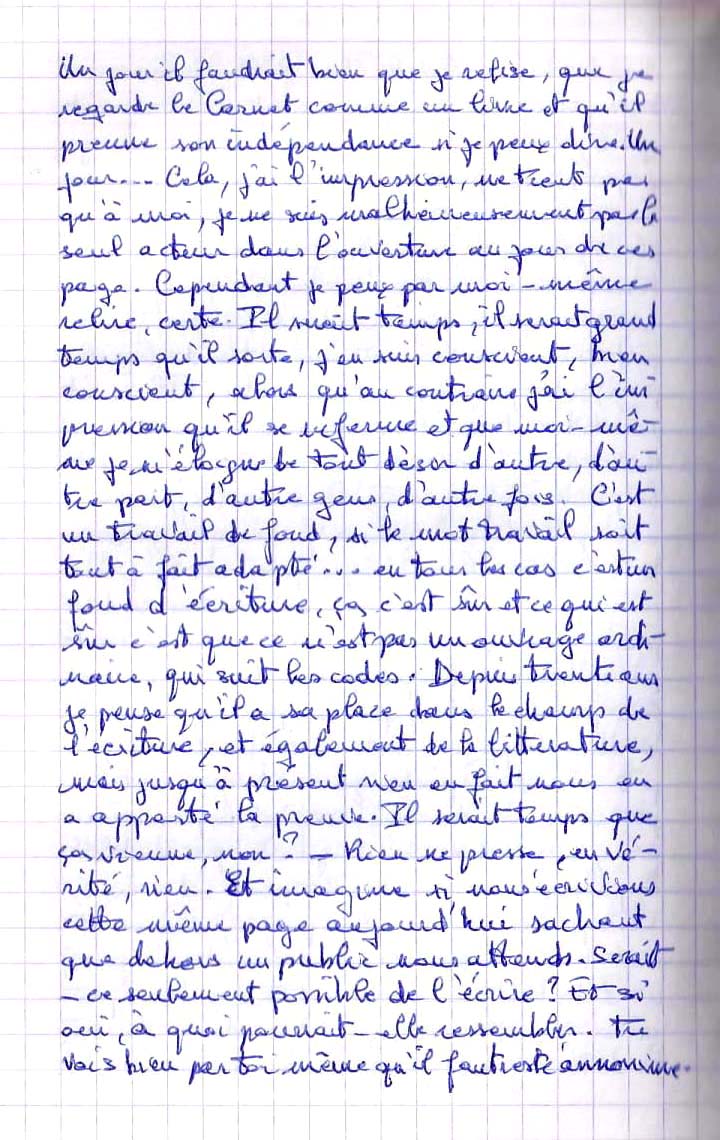 Un jour il faudrait bien que je relise, que je
regarde le Carnet comme un livre et qu'il
prenne son indépendance si je peux dire. Un
jour... Cela, j'ai l'impression, ne tient pas
qu'à moi, je ne suis malheureusement pas le
seul acteur dans l'ouverture au jour de ces
page. Cependant je peux par moi-même
relire, certe. Il serait temps, il serait grand
temps qu'il sorte, j'en suis conscient, bien
conscient, alors qu'au contraire j'ai l'im
pression qu'il se referme et que moi-mê-
me je m'éloigne de tout désir d'autre, d'au
tre part, d'autre gens, d'autre fois. C'est
un travail de fond, si le mot travail soit
tout à fait adapté... en tous les cas c'est un
fond d'écriture, ça c'est sûr et ce qui est
sûr c'est que ce n'est pas un ouvrage ordi-
naire, qui suit les codes. Depuis trente ans
je pense qu'il a sa place dans le champ de
l'écriture, et également de la litterature,
mais jusqu'à présent rien en fait nous en
a apporté la preuve. Il serait temps que
ça vienne, non ? — Rien ne presse, en vé-
rité, rien. Et imagine si nous écrivions
cette même page aujourd'hui sachant
que dehors un public nous attends. Serait
-ce seulement possible de l'écrire ? Et si
oui, à quoi pourrait-elle ressembler. Tu
vois bien par toi même qu'il faut resté annonime.